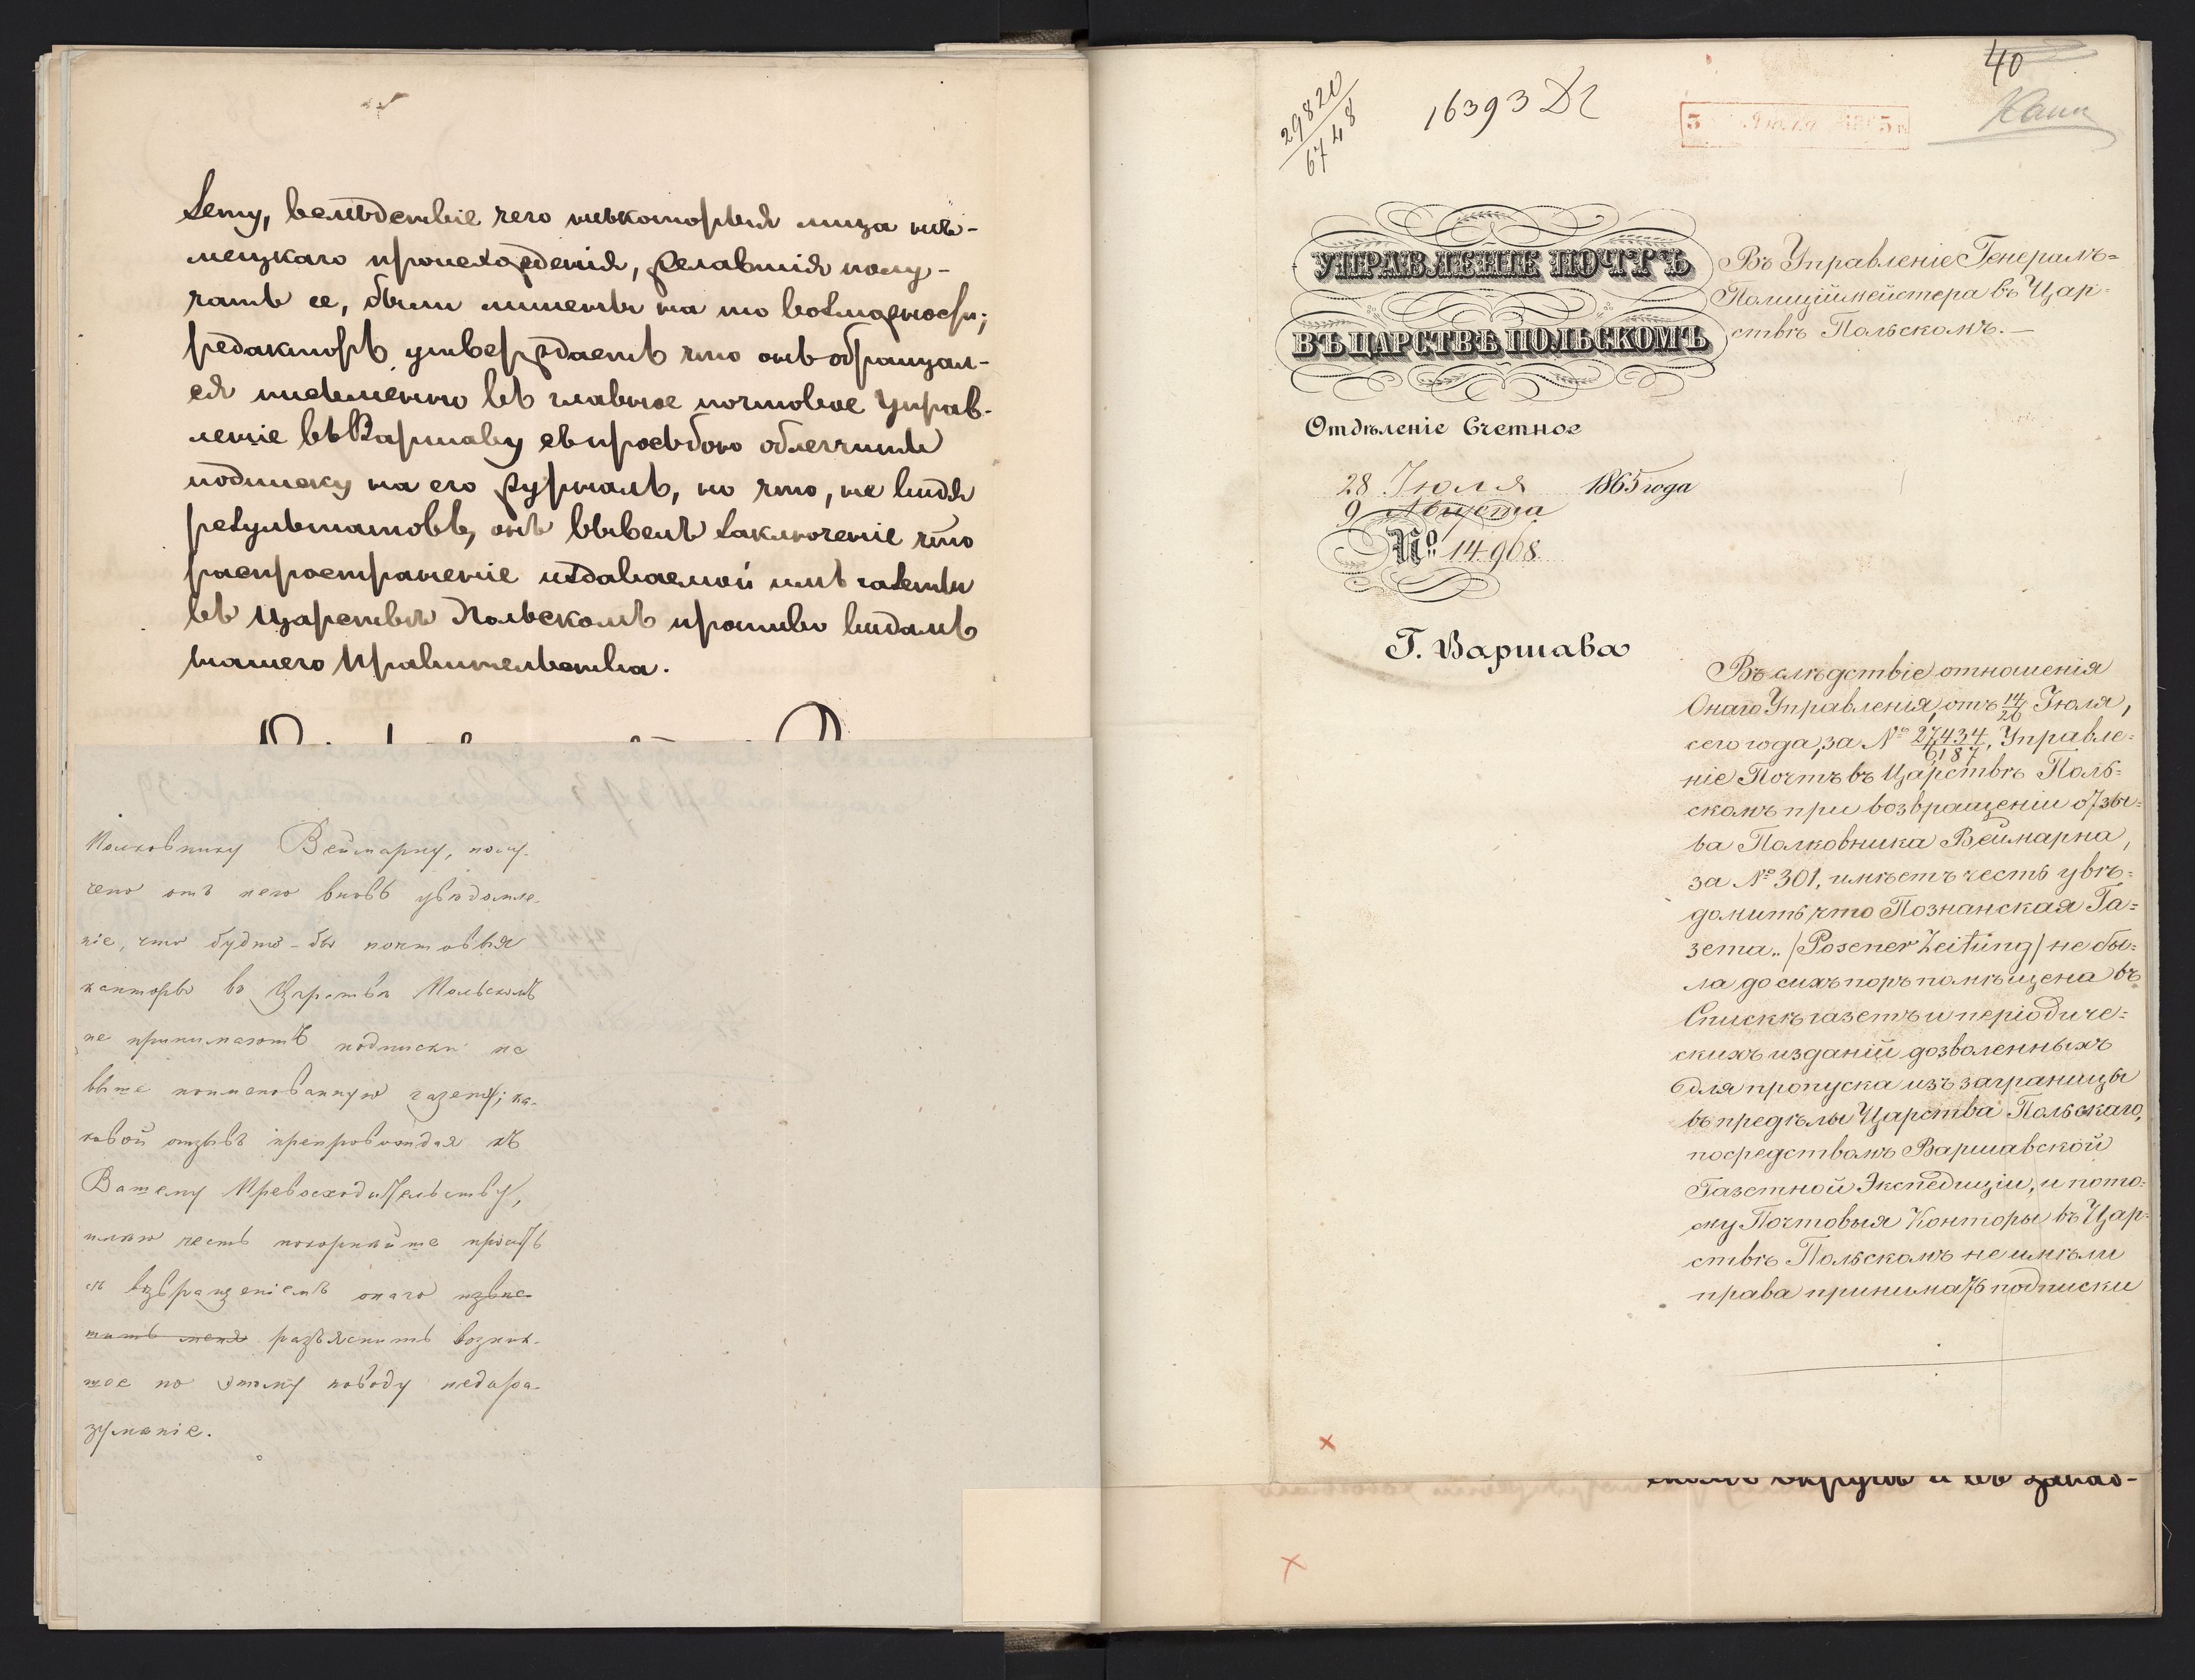 зету, вслѣдствіе чего нѣкоторыя лица нѣ-
мецкаго происхожденія, желавшія полу-
чать ее, были лишены на то возможности;
редакторъ утверждаетъ что онъ обращал-
ся письменно въ главное почтовое Управ-
леніе въ Варшаву съ просьбою облегчить
подписку на его журналъ, но что, не видя
результатовъ, онъ вывелъ заключеніе что
распространеніе издаваемой имъ газеты
въ Царствѣ Польскомъ противно видамъ
нашего Правительства.
Полковнику Веймарну, полу-
чено отъ него вновь увѣдомле-
ніе, что будто-бы почтовыя
конторы въ Царствѣ Польскомъ
не принимаютъ подписки на
выше поименованную газету; ка-
ковой отзывъ препровождая къ
Вашему Превосходительству,
имѣю честь покорнѣйше просить
съ возвращеніемъ онаго извѣ-
стить меня разъяснить возник-
шее по этому поводу недора-
зумѣніе.
40
29820
6748
16393
3
УПРАВЛЕНІЕ ПОЧТЪ
ВЪ ЦАРСТВѢ ПОЛЬСКОМЪ
Отдѣленіе Счетное
28 Іюля 1865 года
9 Августа
№ 14968
Г. Варшава
Въ Управленіе Генералъ-
Полиціймейстера въ Цар-
ствѣ Польскомъ.—
Въ слѣдствіе отношенія
Онаго Управленія, отъ 14/26 Іюля,
сего года, за № 27434/6187, Управле-
ніе Почтъ въ Царствѣ Поль-
скомъ при возвращеніи отзы-
ва Полковника Веймарна,
за № 301, имѣетъ честь увѣ-
домить что Познанская Га-
зета„ /Posener Zeitung/ не бы-
ла до сихъ поръ помѣщена въ
Спискѣ газетъ и періодиче-
скихъ изданій дозволенныхъ
для пропуска изъ заграницы
въ предѣлы Царства Польскаго,
посредствомъ Варшавской
Газетной Экспедиціи, и пото-
му Почтовыя Конторы въ Цар-
ствѣ Польскомъ не имѣли
права принимать подписки